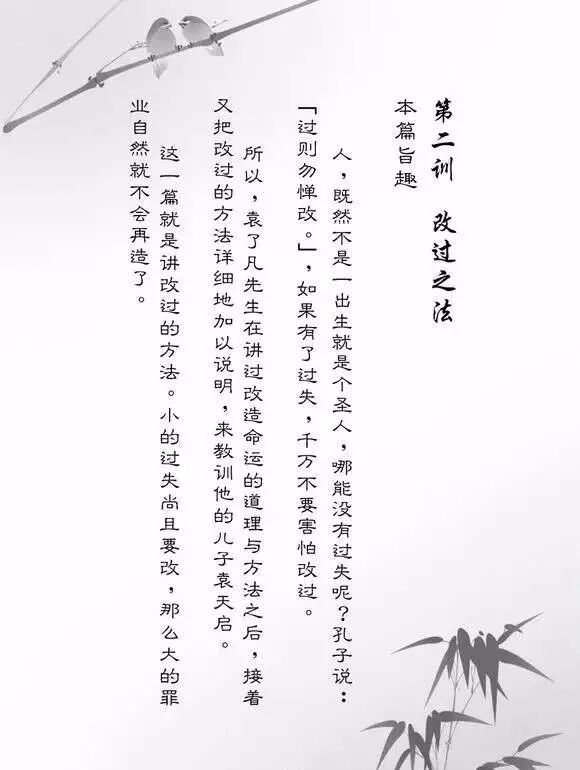 第二训　改过之法
本篇旨趣
人，既然不是一出生就是个圣人，哪能没有过失呢？孔子说：
「过则勿惮改。」，如果有了过失，千万不要害怕改过。
所以，袁了凡先生在讲过改造命运的道理与方法之后，接着
又把改过的方法详细地加以说明，来教训他的儿子袁天启。
这一篇就是讲改过的方法。小的过失尚且要改，那么大的罪
业自然就不会再造了。